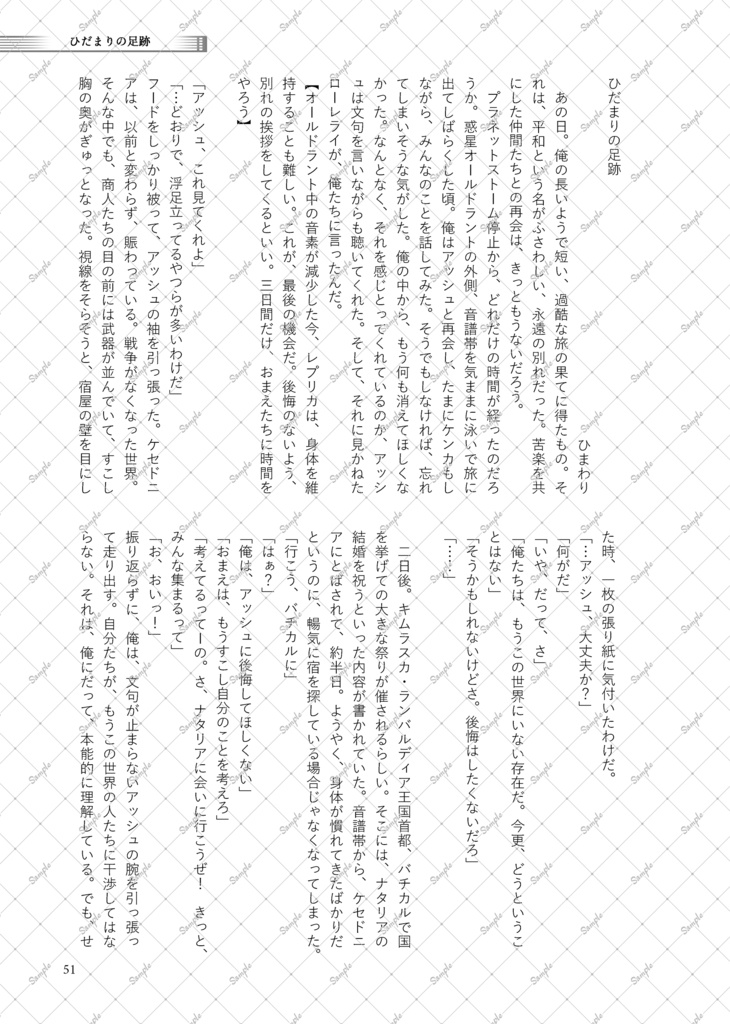 ひだまりの足跡
ひだまりの足跡
ひまわり
あの日。俺の長いようで短い、過酷な旅の果てに得たもの。そ
れは、平和という名がふさわしい、永遠の別れだった。苦楽を共
にした仲間たちとの再会は、きっともうないだろう。
プラネットストーム停止から、どれだけの時間が経ったのだろ
うか。惑星オールドラントの外側、音譜帯を気ままに泳いで旅に
出てしばらくした頃。俺はアッシュと再会し、たまにケンカもし
ながら、みんなのことを話してみた。そうでもしなければ、忘れ
てしまいそうな気がした。俺の中から、もう何も消えてほしくな
かった。なんとなく、それを感じとってくれているのか、アッシ
ュは文句を言いながらも聴いてくれた。そして、それに見かねた
ローレライが、俺たちに言ったんだ。
【オールドラント中の音素が減少した今、レプリカは、身体を維
持することも難しい。これが、最後の機会だ。後悔のないよう、
別れの挨拶をしてくるといい。三日間だけ、おまえたちに時間を
やろう】
「アッシュ、これ見てくれよ」
「…どおりで、浮足立ってるやつらが多いわけだ」
フードをしっかり被って、アッシュの袖を引っ張った。ケセドニ
アは、以前と変わらず、賑わっている。戦争がなくなった世界。
そんな中でも、商人たちの目の前には武器が並んでいて、すこし
胸の奥がぎゅっとなった。視線をそらそうと、宿屋の壁を目にし
た時、一枚の張り紙に気付いたわけだ。
「…アッシュ、大丈夫か?」
「何がだ」
「いや、だって、さ」
「俺たちは、もうこの世界にいない存在だ。今更、どうというこ
とはない」
「そうかもしれないけどさ。後悔はしたくないだろ」
「……」
二日後。キムラスカ・ランバルディア王国首都、バチカルで国
を挙げての大きな祭りが催されるらしい。そこには、ナタリアの
結婚を祝うといった内容が書かれていた。音譜帯から、ケセドニ
アにとばされて、約半日。ようやく、身体が慣れてきたばかりだ
というのに、暢気に宿を探している場合じゃなくなってしまった。
「行こう、バチカルに」
「はぁ?」
「俺は、アッシュに後悔してほしくない」
「おまえは、もうすこし自分のことを考えろ」
「考えてるってーの。さ、ナタリアに会いに行こうぜ! きっと、
みんな集まるって」
「お、おいっ!」
振り返らずに、俺は、文句が止まらないアッシュの腕を引っ張っ
て走り出す。自分たちが、もうこの世界の人たちに干渉してはな
らない。それは、俺にだって、本能的に理解している。でも、せ
51